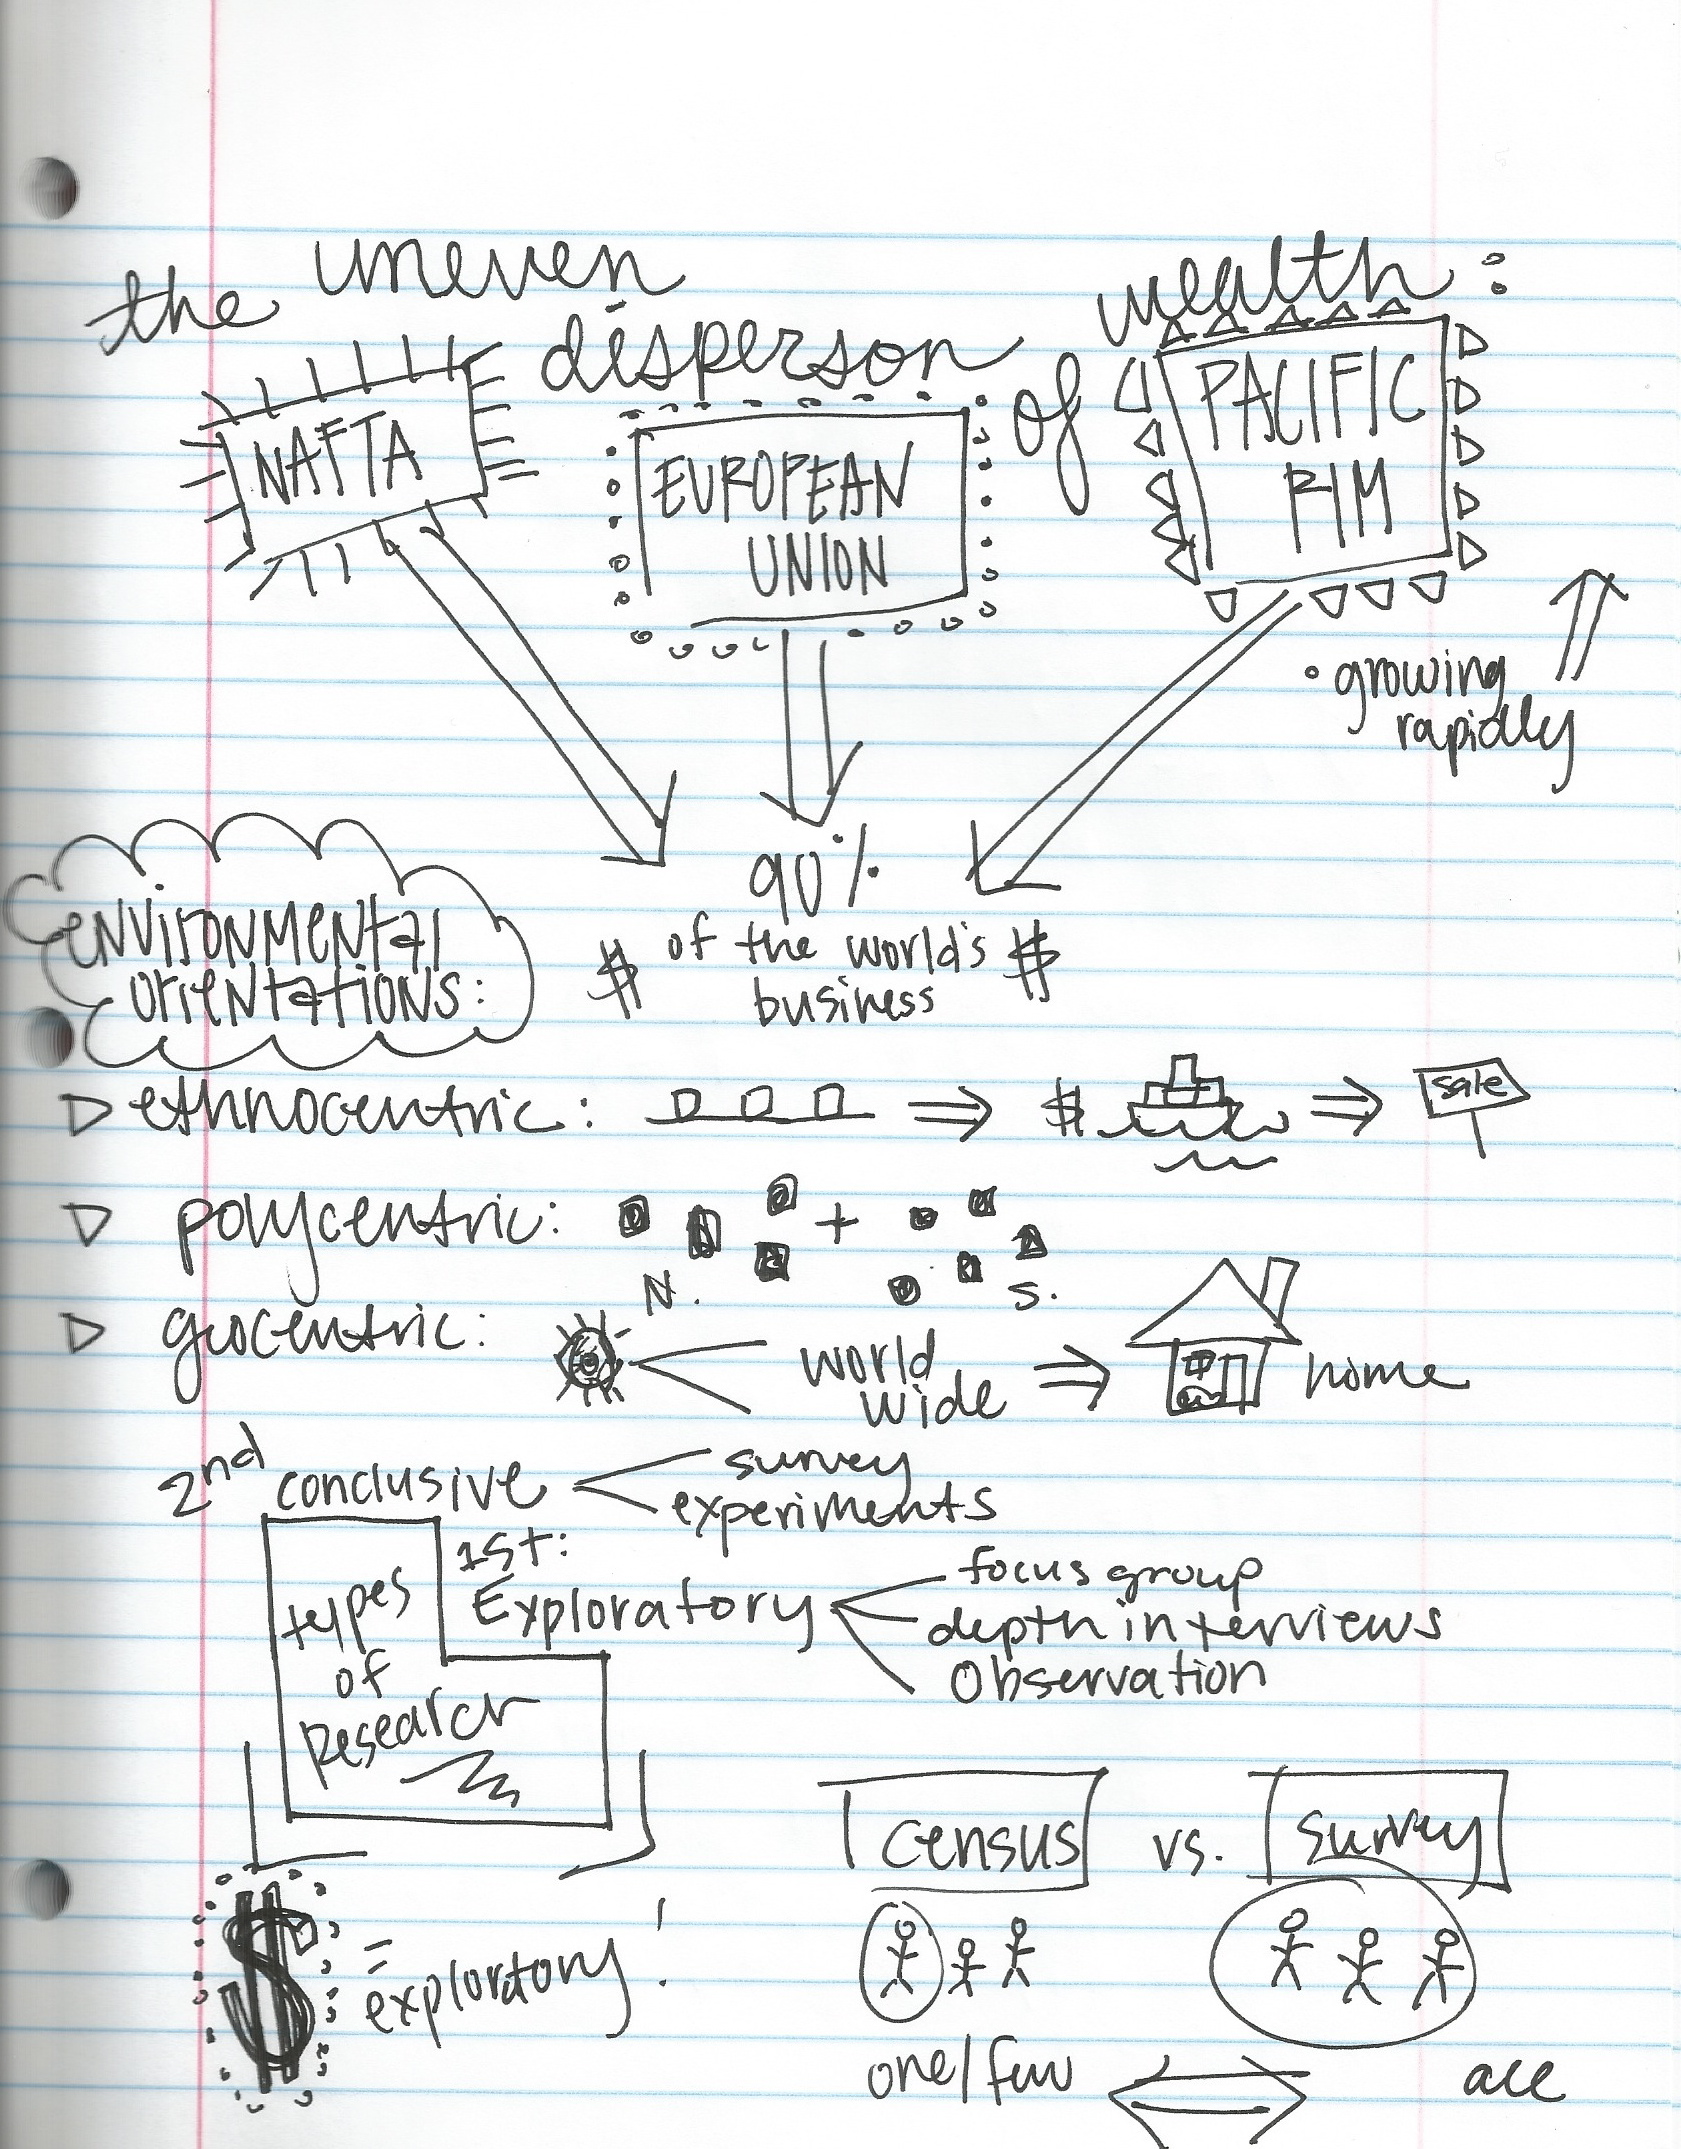 the uneven disperson of wealth:
NAFTA
EUROPEAN
UNION
PACIFIC
RIM
• growing
rapidly
90%
$ of the world's $
business
environmental
orientations:
ethnocentric: $ sale
polycentric: +
N. S.
geocentric: world
wide home
2nd conclusive survey
experiments
1st:
Exploratory focus group
depth interviews
Observation
types
of
Research
census vs. survey
$ = exploratory!
one/few all